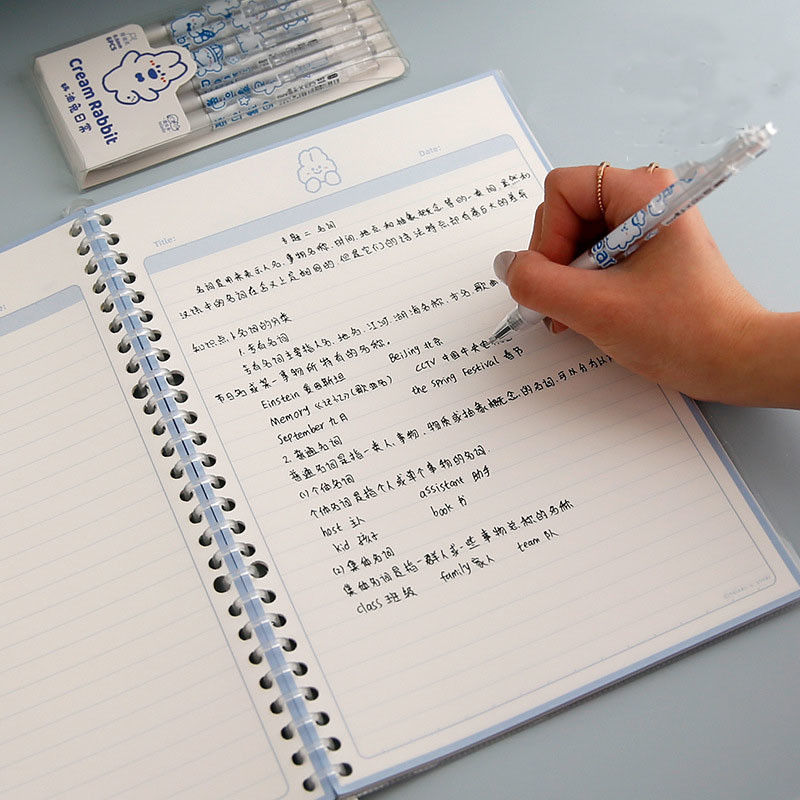 Cream Rabbit
奶油兔日常
6PCS
Title:
Date:
专题二 名词
名词是用来表示人名、事物名称、时间、地点和抽象概念等的一类词,虽然和
汉语中的名词在含义上是相同的,但是它们的语法特点却有着巨大的差异
知识点1 名词的分类
1.专有名词
专有名词主要指人名、地名、江河湖海名称、书名、歌曲
节日名或某一事物所特有的名称。
Einstein 爱因斯坦 Beijing 北京
Memory 《记忆》(歌曲名) CCTV 中国中央电
September 九月 the Spring Festival 春节
2.普通名词
普通名词是指一类人、事物、物质或抽象概念的名词,可以分为以
(1)个体名词
个体名词是指个人或单个事物的名词.
host 主人 assistant 助手
kid 孩子 book 书
(2)集体名词
集体名词是指一群人或一些事物总称的名称
class 班级 family 家人 team 队